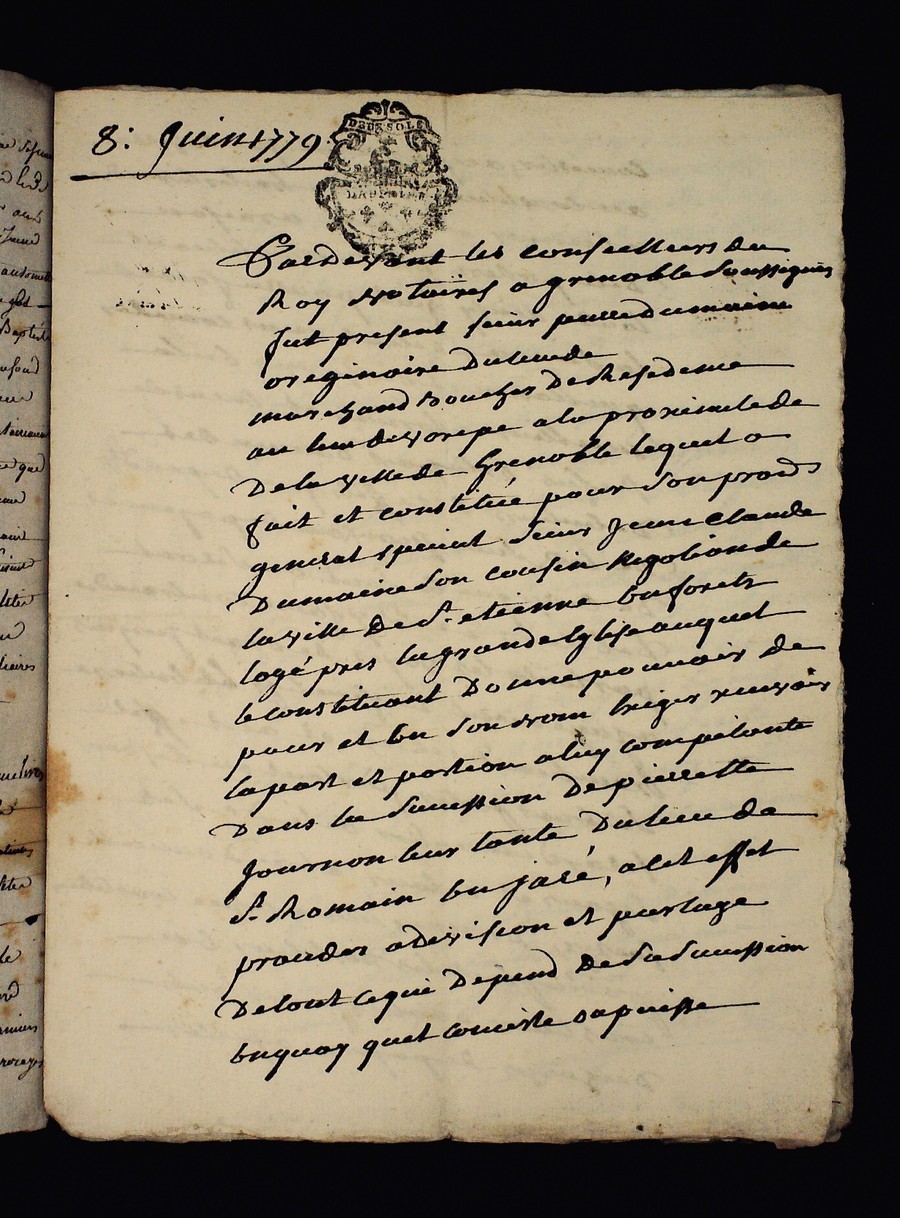 8: Juin 1779
DEUX SOLS
DAUPHINE
Pardevant les conseillers du
Roy Notaires a grenoble Soussignés
fut present sieur pierre dumaine
originaire du lieu de
marchand Boucher De Residence
au lieu de vorepe a la proximité de
De la ville de Grenoble lequel a
fait et constitué pour Son procr
general special Sieur Jean Claude
Dumaine Son cousin Negotiant de
la ville De St. etienne En forets
logé pres la grande Eglise auquel
le constituant Donne pouvoir de
pour et En Son Nom Exiger recevoir
la part et portion a luy compétante
Dans la Succession De pierrette
Journon leur tante Du lieu de
St. Romain En jaré, a cet effet
proceder a division et partage
De tout ce qui Dépend De Sa Succession
En quoy quel consiste a puisse